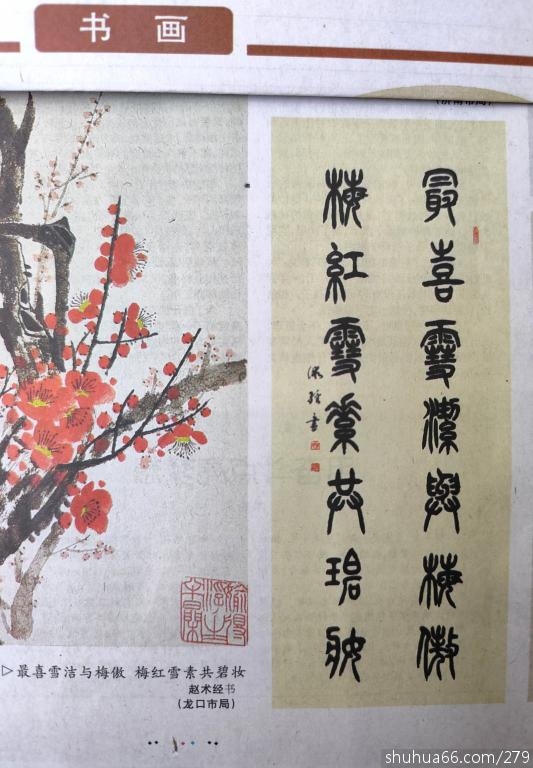 书 画
最喜雪潔與梅傲
梅紅雪素共碧妝
術經書
▷最喜雪洁与梅傲 梅红雪素共碧妆
赵术经书
(龙口市局)
shuhua66.com/279